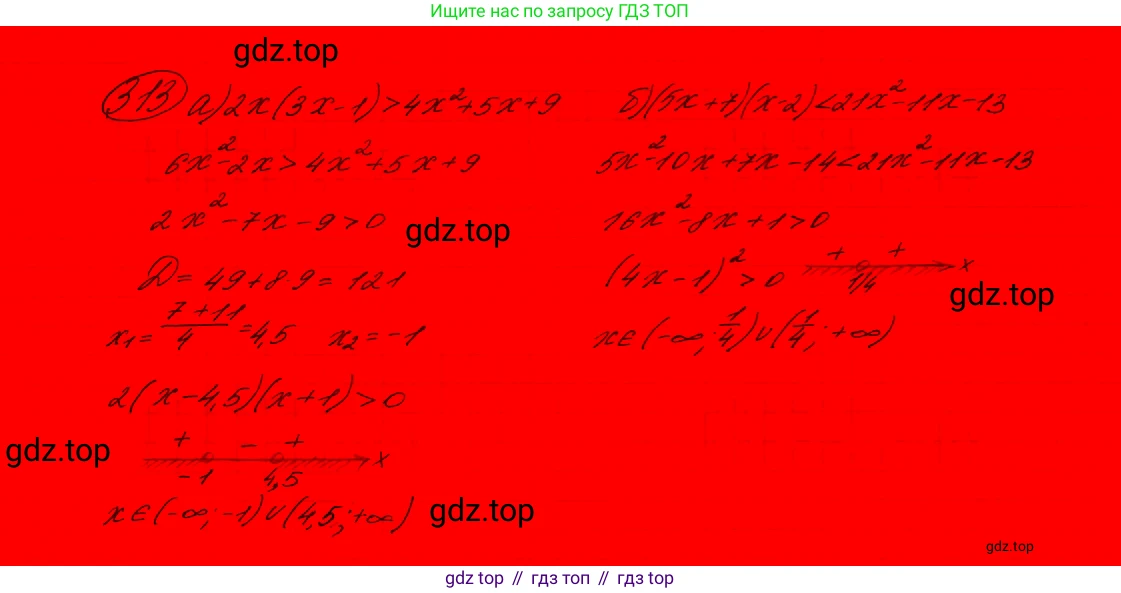 Ищите нас по запросу ГДЗ ТОП
gdz.top
313 а) 2x(3x-1)>4x²+5x+9
6x²-2x>4x²+5x+9
2x²-7x-9>0
gdz.top
D=49+8·9=121
x₁=(7+11)/4=4,5 x₂=-1
2(x-4,5)(x+1)>0
+ - +
gdz.top
-1 4,5 x
x∈(-∞;-1)∪(4,5;+∞)
gdz.top
б) (5x+7)(x-2)<21x²-11x-13
5x²-10x+7x-14<21x²-11x-13
16x²-8x+1>0
(4x-1)²>0
+ +
1/4 x
gdz.top
x∈(-∞;1/4)∪(1/4;+∞)
gdz.top
gdz top // гдз топ // gdz top